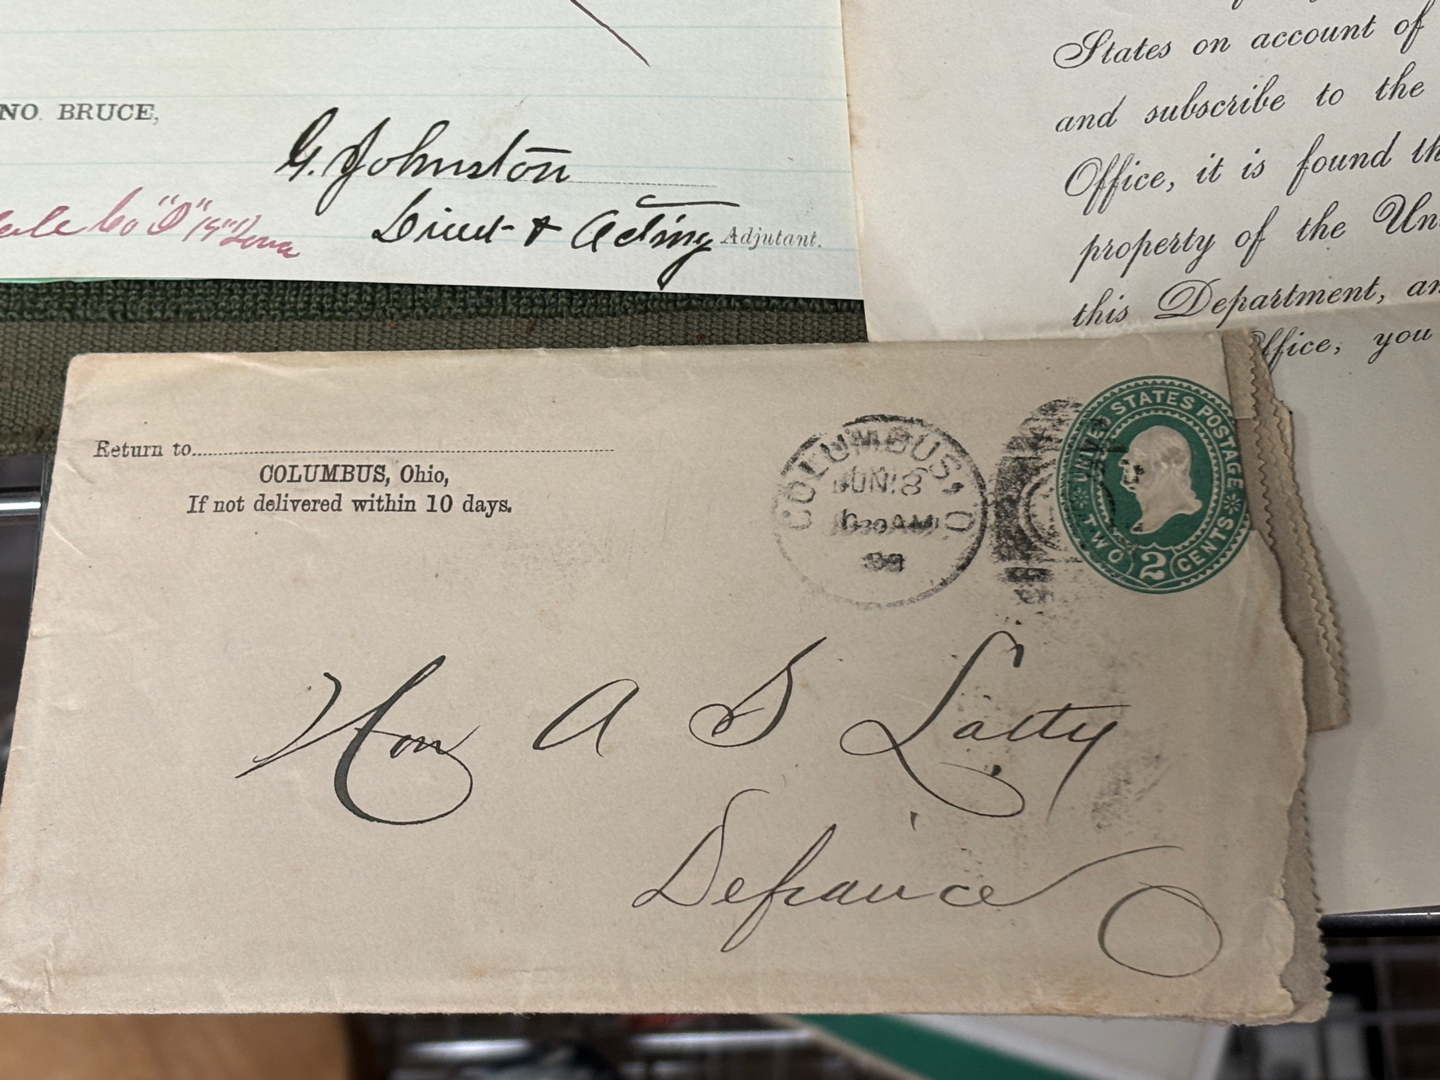 NO. BRUCE,
G. Johnston
Lieut & Acting Adjutant.
Co "D" 19" Iowa
States on account of
and subscribe to the
Office, it is found th
property of the Un
this Department, an
ffice, you
Return to
COLUMBUS, Ohio,
If not delivered within 10 days.
COLUMBUS, O
JUN 18
AM
98
UNITED STATES POSTAGE
TWO 2 CENTS
Hon A S Latty
Defiance
O